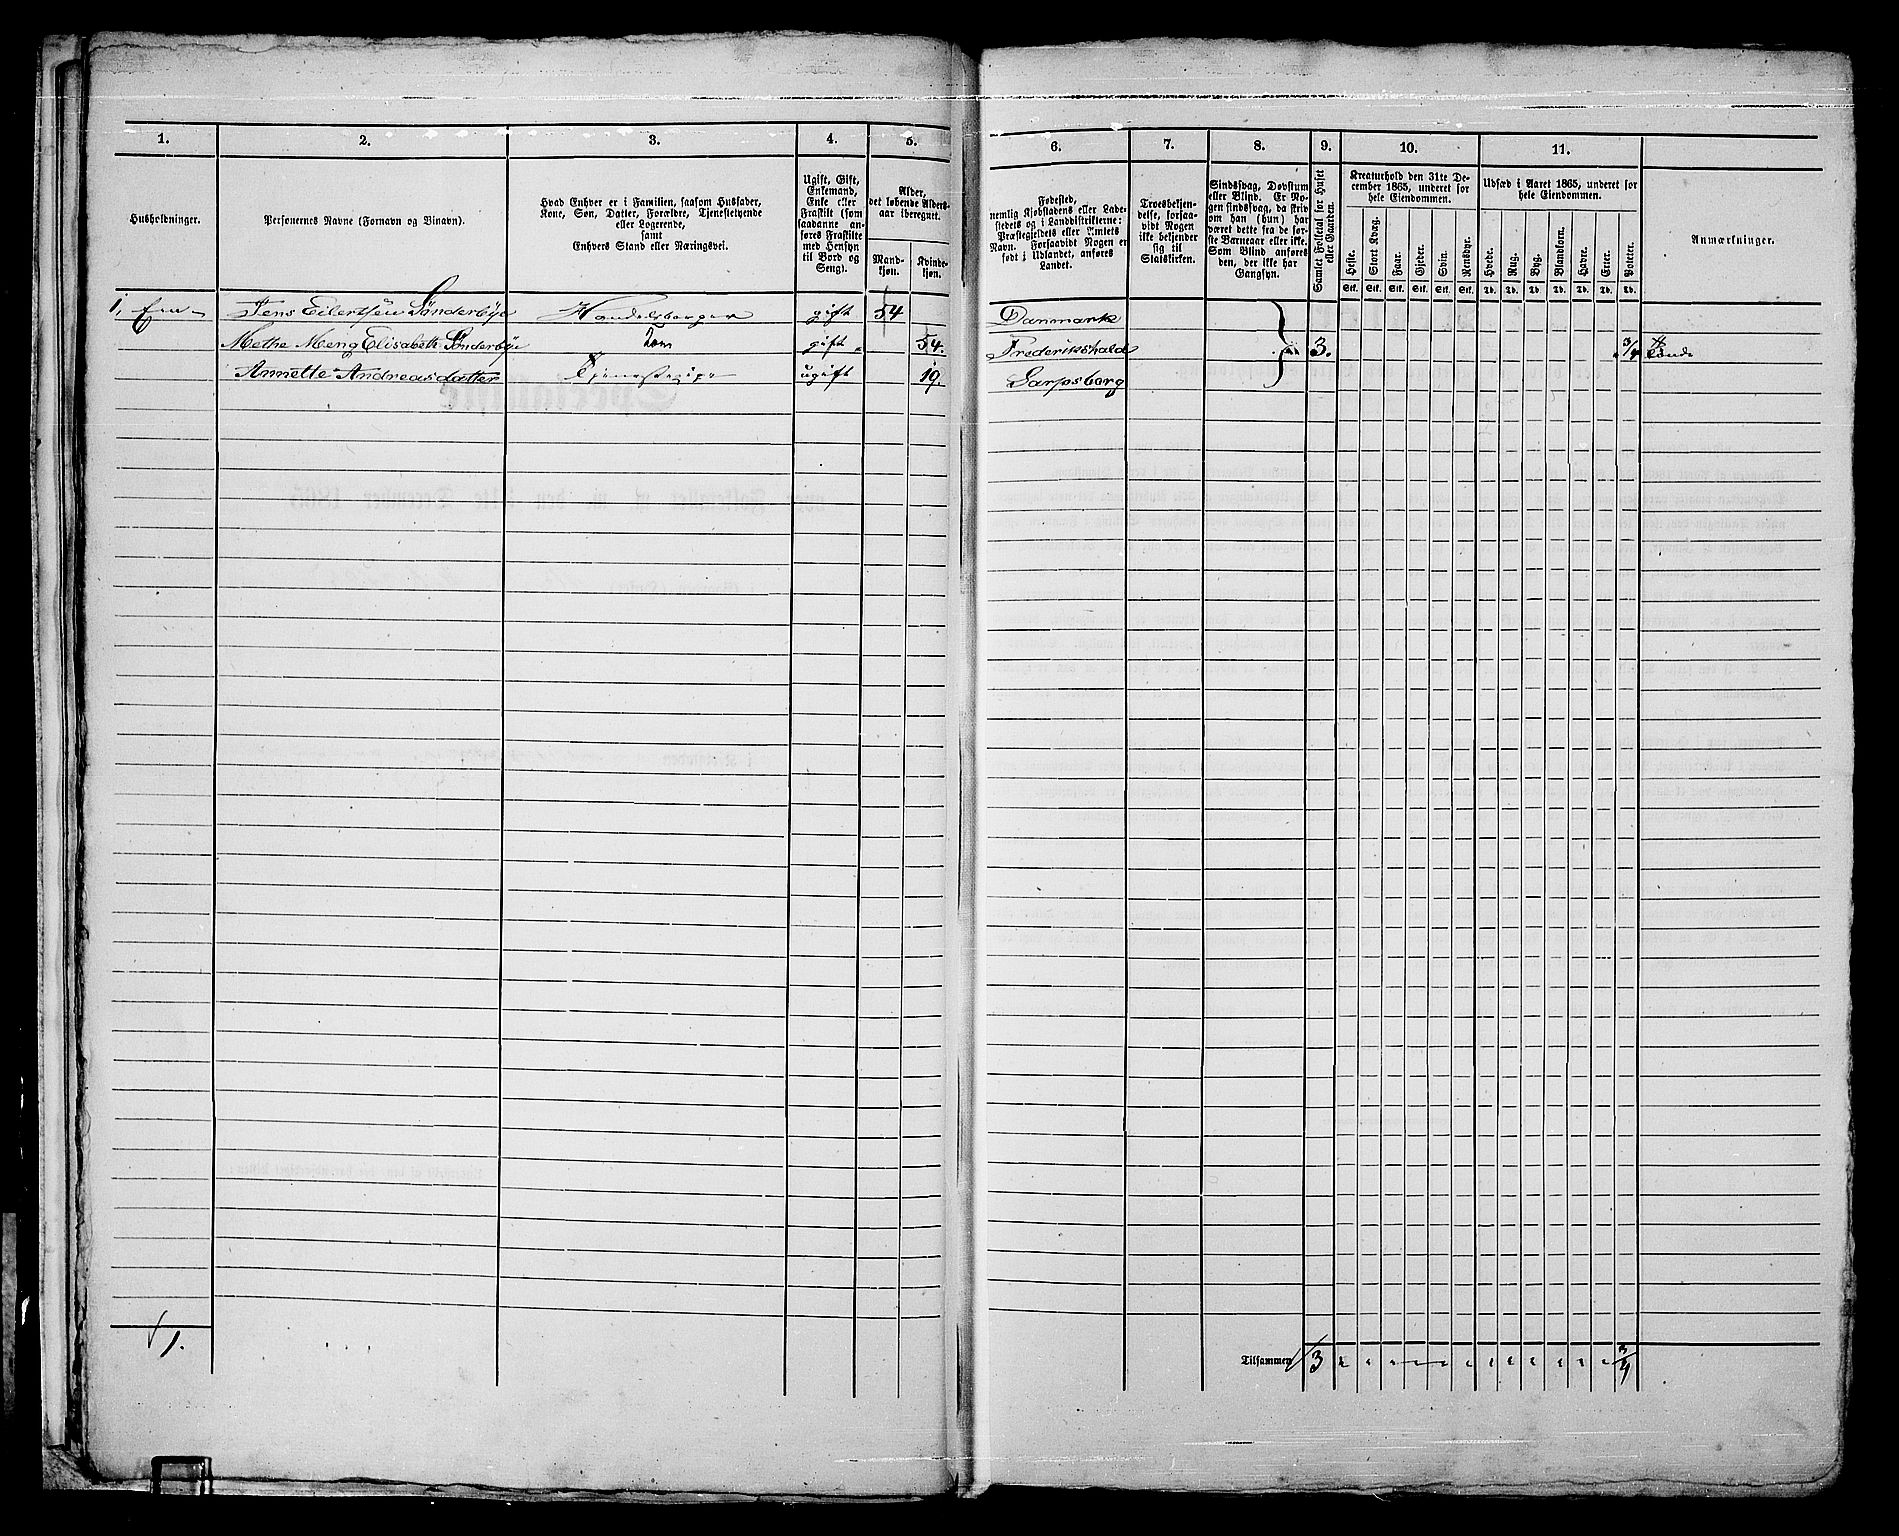 1. 2. 3. 4. 5. 6. 7. 8. 9. 10. 11.
Husholdninger.
Personernes Navne (Fornavn og Binavn).
Hvad Enhver er i Familien, saasom Husfader,
Kone, Søn, Datter, Forældre, Tjenestetyende
eller Logerende,
samt
Enhvers Stand eller Næringsvei.
Ugift, Gift,
Enkemand,
Enke eller
Fraskilt (som
saadanne an-
føres Fraskilte
med Hensyn
til Bord og
Seng).
Alder,
det løbende Alders-
aar iberegnet.
Mand-
kjøn.
Kvinde-
kjøn.
Fødested,
nemlig Kjøbstadens eller Lade-
stedets og i Landdistrikterne:
Præstegjeldets eller Amtets
Navn. Forsaavidt Nogen er
født i Udlandet, anføres
Landet.
Troesbekjen-
delse, forsaa-
vidt Nogen
ikke bekjender
sig til
Statskirken.
Sindssvag, Døvstum
eller Blind. Er No-
gen sindssvag, da skriv
om han (hun) har
været dette fra de før-
ste Barneaar eller ikke.
Som Blind anføres
den, der ikke har
Gangsyn.
Samlet Folketal for Huset
eller Gaarden.
Kreaturhold den 31te De-
cember 1865, underet for
hele Eiendommen.
Heste. Stort Kvæg. Faar. Gjeder. Svin. Rensdyr.
Stk. Stk. Stk. Stk. Stk. Stk.
Udsæd i Aaret 1865, underet for
hele Eiendommen.
Hvede. Rug. Byg. Blandkorn. Havre. Erter. Poteter.
Td. Td. Td. Td. Td. Td. Td.
Anmærkninger.
1, Een Jens Eilertsen Sønderbye Handelsborger gift 54 Danmark
Methe Meng Elisabeth Sønderbye Kone gift 54. Frederikshald 3. 3/4
Annette Andreasdatter Tjenestepige ugift 19. Sarpsborg
1.
Tilsammen 3 3/4